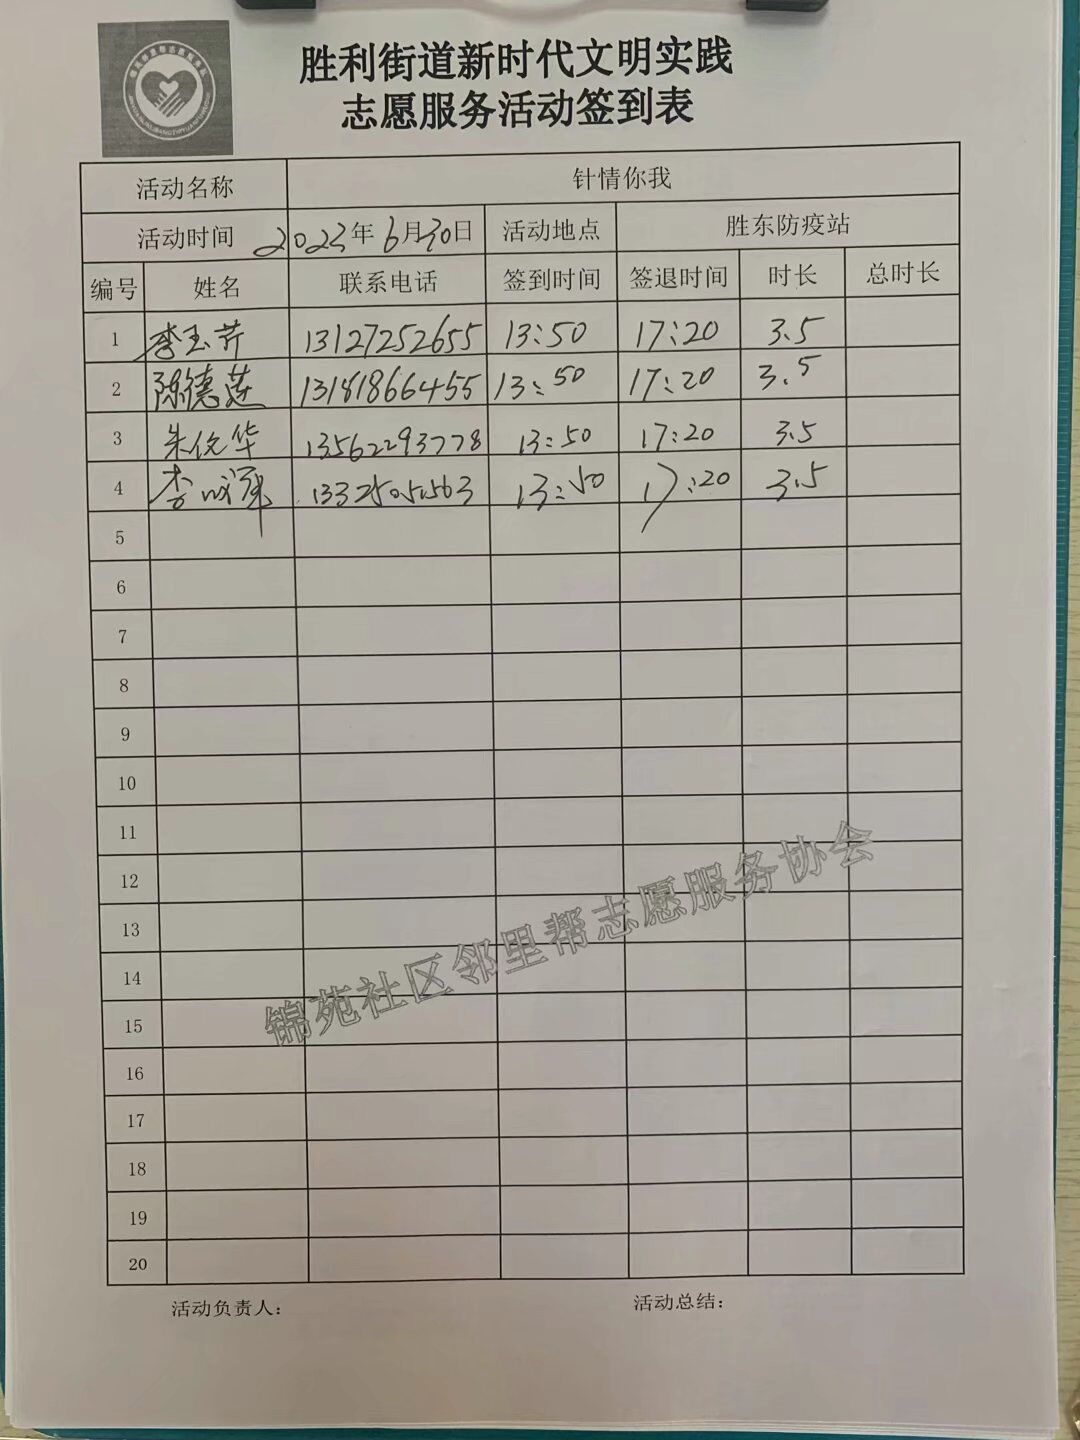 胜利街道新时代文明实践
志愿服务活动签到表
活动名称 针情你我
活动时间 2023年6月30日 活动地点 胜东防疫站
编号 姓名 联系电话 签到时间 签退时间 时长 总时长
1 李玉芹 13127252655 13:50 17:20 3.5
2 陈德莲 13181866455 13:50 17:20 3.5
3 华 13562293778 13:50 17:20 3.5
4 李 13325051563 13:50 17:20 3.5
5
6
7
8
9
10
11
12
13
14
15
16
17
18
19
20
锦苑社区邻里帮志愿服务协会
活动负责人: 活动总结: